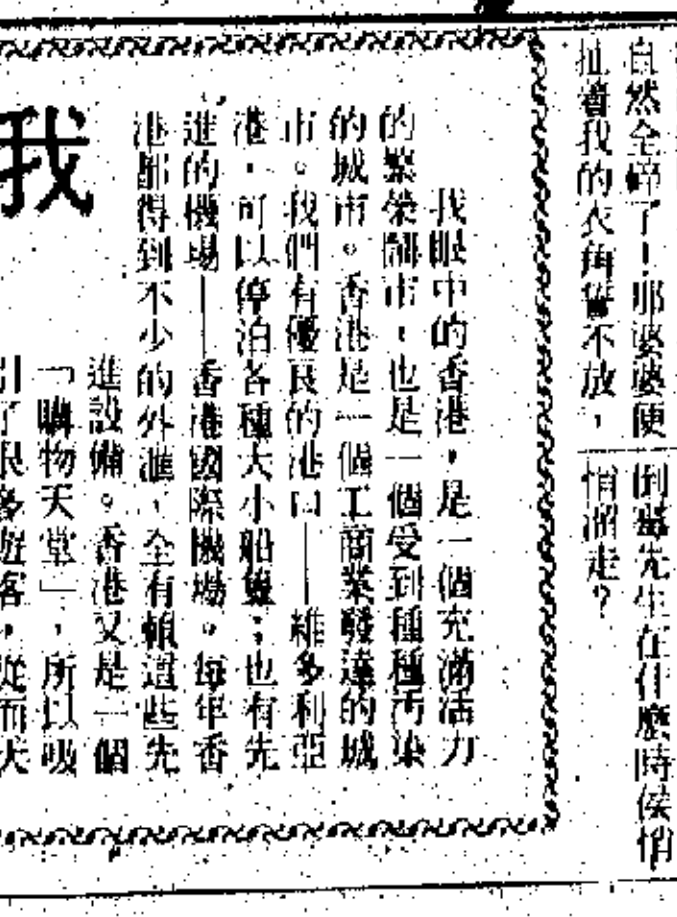 自然全碎了！那婆婆便
扯着我的衣角誓不放，
倒霉先生在什麼時侯悄
悄溜走？
我
我眼中的香港，是一個充滿活力
的繁榮鬧市，也是一個受到種種污染
的城市。香港是一個工商業發達的城
市。我們有優良的港口——維多利亞
港，可以停泊各種大小船隻；也有先
進的機場——香港國際機場。每年香
港都得到不少的外滙，全有賴這些先
進設備。香港又是一個
「購物天堂」，所以吸
引了很多遊客，從而